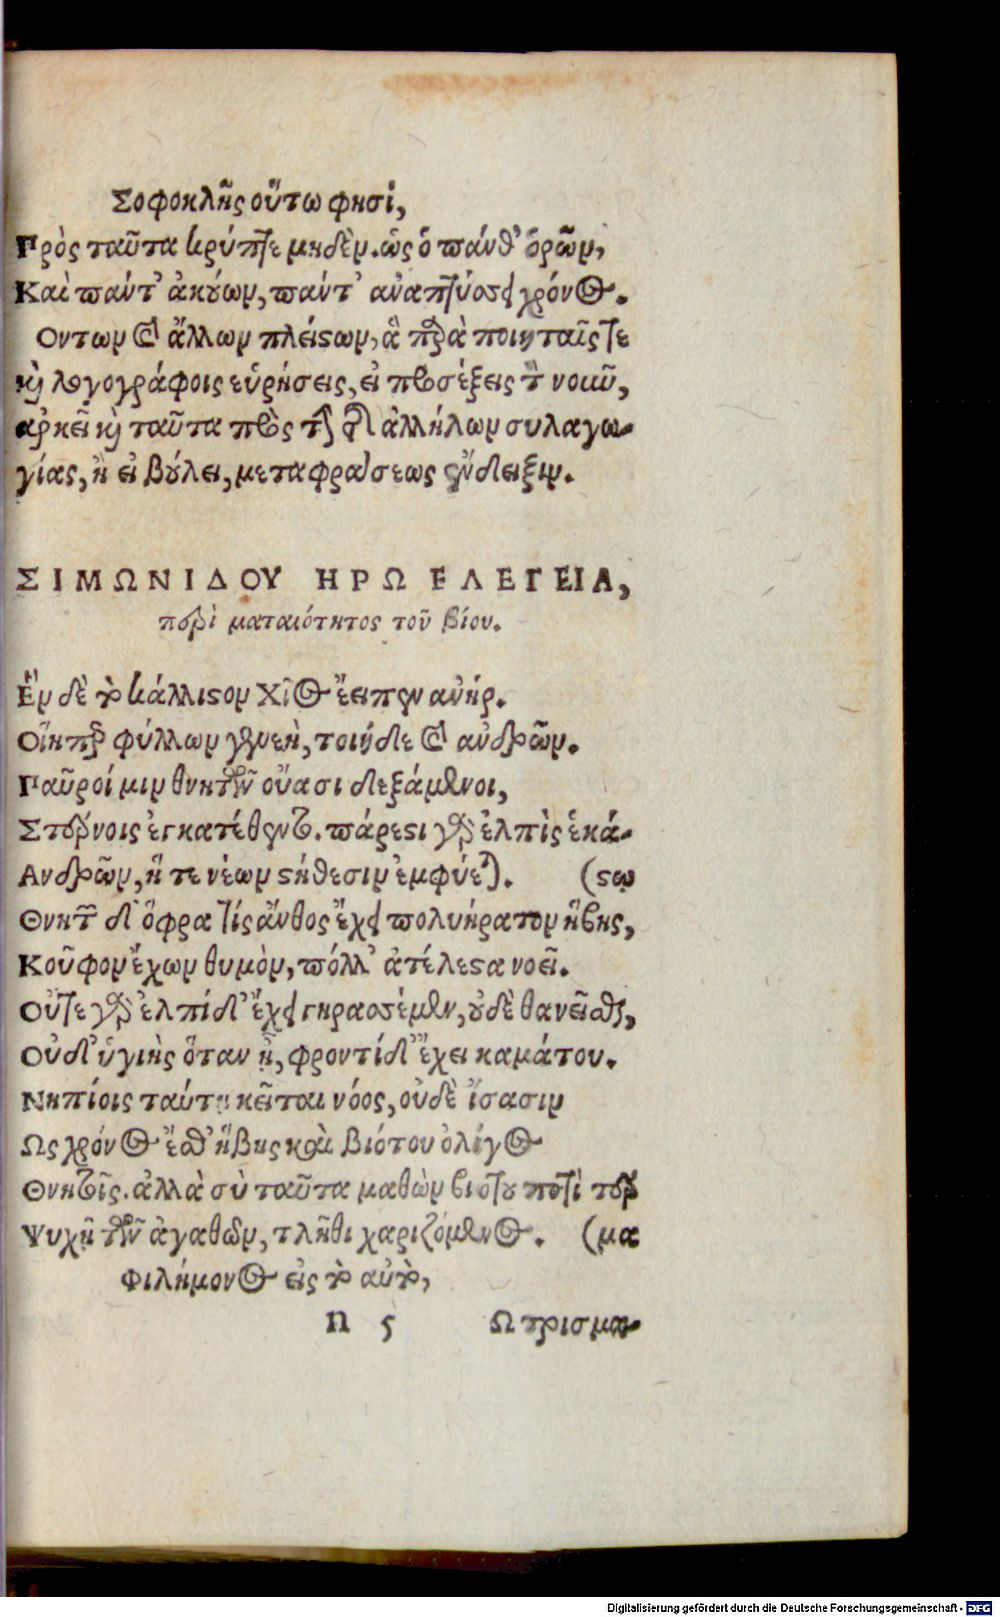 Σοφοκλῆς οὕτω φησί,
Πρὸς ταῦτα κρύπτε μηδὲν. ὡς ὁ πάνθ' ὁρῶν,
Καὶ πάντ' ἀκούων, πάντ' ἀναπτύσσει χρόνος.
Οντων καὶ ἄλλων πλείστων, ἃ παρὰ ποιηταῖς τε
καὶ λογογράφοις εὑρήσεις, εἰ προσέξεις τὸν νοῦν,
ἀρκεῖ καὶ ταῦτα πρὸς τὴν τῶν ἀλλήλων συλλαγω-
γίας, ἢ εἰ βούλει, μεταφράσεως ἔνδειξιν.
ΣΙΜΩΝΙΔΟΥ ΗΡΩΕΛΕΓΕΙΑ,
περὶ ματαιότητος τοῦ βίου.
Ἓν δὲ τὸ κάλλιστον Χῖος ἔειπεν ἀνήρ.
Οἵηπερ φύλλων γενεὴ, τοιήδε καὶ ἀνδρῶν.
Παῦροί μιν θνητῶν οὔασι δεξάμενοι,
Στέρνοις ἐγκατέθεντο. πάρεστι γὰρ ἐλπὶς ἑκά-
Ανδρῶν, ἥ τε νέων στήθεσιν ἐμφύεται. (στῳ
Θνητῶν δ' ὄφρα τίς ἄνθος ἔχει πολυήρατον ἥβης,
Κοῦφον ἔχων θυμὸν, πόλλ' ἀτέλεστα νοεῖ.
Οὔτε γὰρ ἐλπίδ' ἔχει γηρασσέμεν, οὐδὲ θανεῖσθαι,
Οὐδ' ὑγιὴς ὅταν ᾖ, φροντίδ' ἔχει καμάτου.
Νηπίοις ταύτῃ κεῖται νόος, οὐδὲ ἴσασιν
Ως χρόνος ἔσθ' ἥβης καὶ βιότου ὀλίγος
Θνητοῖς. ἀλλὰ σὺ ταῦτα μαθὼν βιότου ποτὶ τέρ
Ψυχῇ τῶν ἀγαθῶν, τλῆθι χαριζόμενος. (μα
Φιλήμονος εἰς τὸ αὐτὸ,
Π 5 Ω τρισμα-
Digitalisierung gefördert durch die Deutsche Forschungsgemeinschaft - DFG